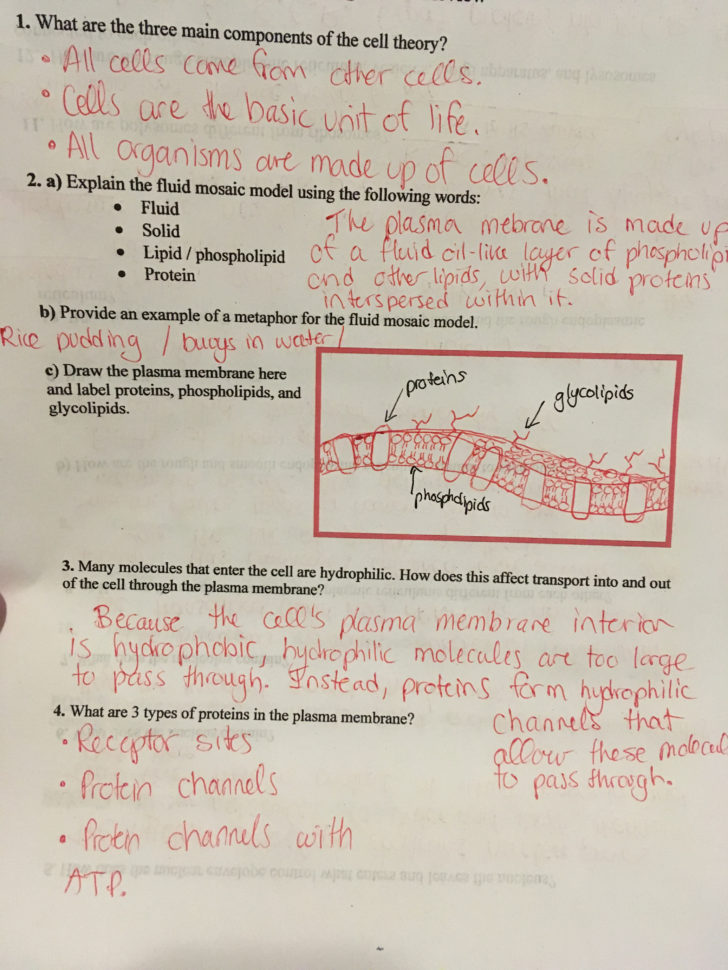 1. What are the three main components of the cell theory?
• All cells come from other cells.
• Cells are the basic unit of life.
• All organisms are made up of cells.
2. a) Explain the fluid mosaic model using the following words:
• Fluid
• Solid
• Lipid / phospholipid
• Protein
The plasma mebrane is made up
of a fluid oil-like layer of phospholipi
and other lipids, with solid proteins
interspersed within it.
b) Provide an example of a metaphor for the fluid mosaic model.
Rice pudding / buoys in water/
c) Draw the plasma membrane here
and label proteins, phospholipids, and
glycolipids.
proteins
glycolipids
phospholipids
3. Many molecules that enter the cell are hydrophilic. How does this affect transport into and out
of the cell through the plasma membrane?
Because the cell's plasma membrane interior
is hydrophobic, hydrophilic molecules are too large
to pass through. Instead, proteins form hydrophilic
channels that
allow these molecul
to pass through.
4. What are 3 types of proteins in the plasma membrane?
• Receptor sites
• Protein channels
• Protein channels with
ATP.